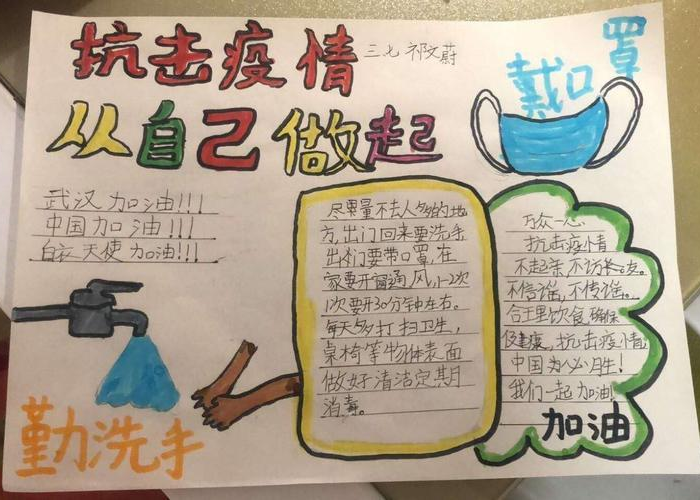 抗击疫情
三七 祁文蔚
从自己做起
戴口罩
武汉加油!!!
中国加油!!!
白衣天使加油!!!
勤洗手
尽量不去人多的地
方,出门回来要洗手
出门要带口罩,在
家要开窗通风,1-2次
1次要开30分钟左右。
每天多打扫卫生,
桌椅等物体表面
做好清洁定期
消毒。
万众一心,
抗击疫情
不起亲,不访友。
不信谣,不传谣。
合理饮食,确保
健康。抗击疫情,
中国必胜!
我们一起加油!
加油